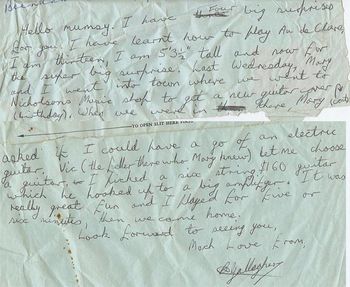 Hello mumsy. I have four big surprises
for you, I have learnt how to play Au de Chare,
I am thirteen, I am 5'3½" tall and now for
the super big surprise. Last Wednesday, Mary
and I went into town where we went to
Nicholsons Music shop to get a new guitar cover
(birthday). When we were in there, Mary
TO OPEN SLIT HERE FIRST
asked if I could have a go of an electric
guitar. Vic (the feller there who Mary knew) let me choose
a guitar, so I picked a six string $160 guitar
which he hooked up to a big amplifyer. It was
really great fun and I played for five or
six minutes, then we came home.
Look forward to seeing you,
Much Love From,
Gallagher